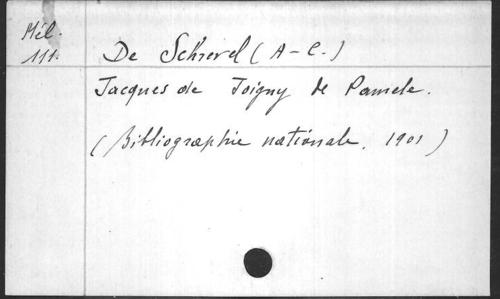 Mél.
111.
De Schrevel (A-C.)
Jacques de Joigny de Pamele.
(Bibliographie nationale, 1901)